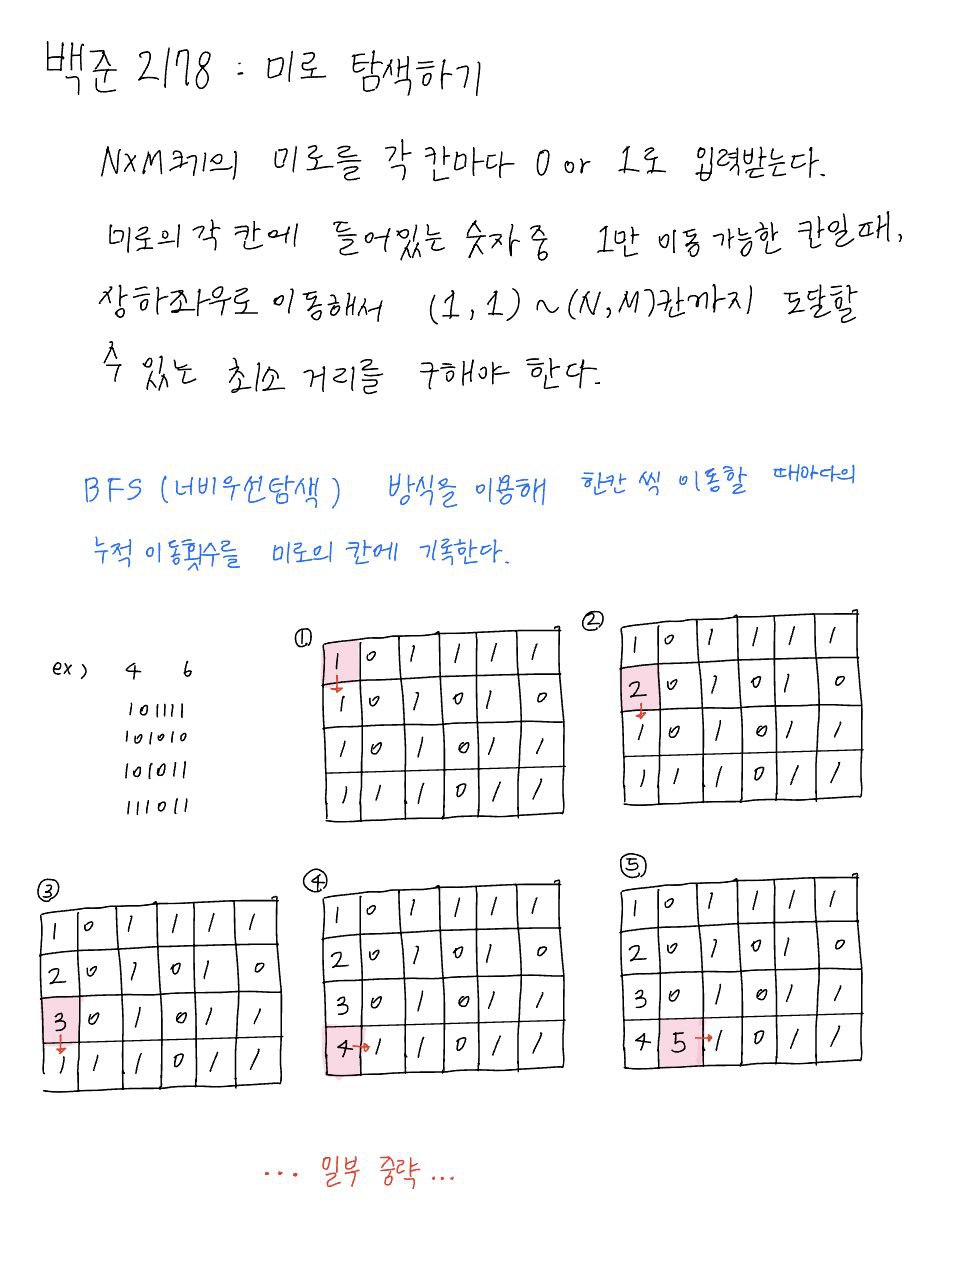 백준 2178 : 미로 탐색하기
N×M크기의 미로를 각 칸마다 0 or 1로 입력받는다.
미로의 각 칸에 들어있는 숫자 중 1만 이동 가능한 칸일때,
상하좌우로 이동해서 (1,1) ~ (N,M)칸까지 도달할
수 있는 최소 거리를 구해야 한다.
BFS (너비우선탐색) 방식을 이용해 한칸 씩 이동할 때마다의
누적 이동횟수를 미로의 칸에 기록한다.
ex) 4 6
101111
101010
101011
111011
①
1 0 1 1 1 1
1 0 1 0 1 0
1 0 1 0 1 1
1 1 1 0 1 1
②
1 0 1 1 1 1
2 0 1 0 1 0
1 0 1 0 1 1
1 1 1 0 1 1
③
1 0 1 1 1 1
2 0 1 0 1 0
3 0 1 0 1 1
1 1 1 0 1 1
④
1 0 1 1 1 1
2 0 1 0 1 0
3 0 1 0 1 1
4 1 1 0 1 1
⑤
1 0 1 1 1 1
2 0 1 0 1 0
3 0 1 0 1 1
4 5 1 0 1 1
... 일부 중략 ...